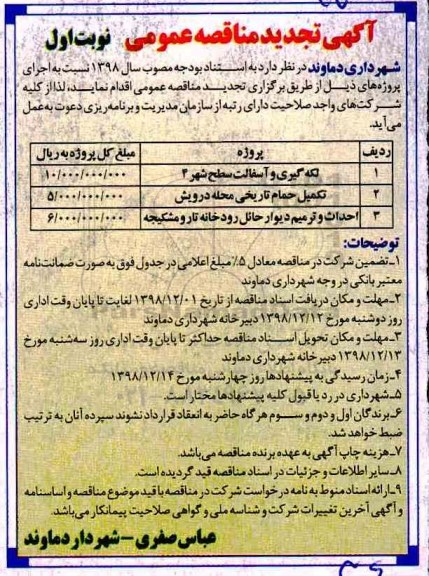 آگهی تجدید مناقصه عمومی نوبت اول
شهرداری دماوند در نظر دارد به استناد بودجه مصوب سال ۱۳۹۸ نسبت به اجرای
پروژه‌های ذیل از طریق برگزاری تجدید مناقصه عمومی اقدام نماید، لذا از کلیه
شرکت‌های واجد صلاحیت دارای رتبه از سازمان مدیریت و برنامه‌ریزی دعوت به عمل
می‌آید.
ردیف پروژه مبلغ کل پروژه به ریال
۱ لکه گیری و آسفالت سطح شهر ۴ ۱۰/۰۰۰/۰۰۰/۰۰۰
۲ تکمیل حمام تاریخی محله درویش ۵/۰۰۰/۰۰۰/۰۰۰
۳ احداث و ترمیم دیوار حائل رودخانه تار و مشکیجه ۶/۰۰۰/۰۰۰/۰۰۰
توضیحات:
۱ـ تضمین شرکت در مناقصه معادل ۵٪ مبلغ اعلامی در جدول فوق به صورت ضمانت‌نامه
معتبر بانکی در وجه شهرداری دماوند
۲ـ مهلت و مکان دریافت اسناد مناقصه از تاریخ ۱۳۹۸/۱۲/۰۱ لغایت تا پایان وقت اداری
روز دوشنبه مورخ ۱۳۹۸/۱۲/۱۲ دبیرخانه شهرداری دماوند
۳ـ مهلت و مکان تحویل اسناد مناقصه حداکثر تا پایان وقت اداری روز سه‌شنبه مورخ
۱۳۹۸/۱۲/۱۳ دبیرخانه شهرداری دماوند
۴ـ زمان رسیدگی به پیشنهادها روز چهارشنبه مورخ ۱۳۹۸/۱۲/۱۴
۵ـ شهرداری در رد یا قبول کلیه پیشنهادها مختار است.
۶ـ برندگان اول و دوم و سوم هرگاه حاضر به انعقاد قرارداد نشوند سپرده آنان به ترتیب
ضبط خواهد شد.
۷ـ هزینه چاپ آگهی به عهده برنده مناقصه می‌باشد.
۸ـ سایر اطلاعات و جزئیات در اسناد مناقصه قید گردیده است.
۹ـ ارائه اسناد منوط به نامه درخواست شرکت در مناقصه با قید موضوع مناقصه و اساسنامه
و آگهی آخرین تغییرات شرکت و شناسه ملی و گواهی صلاحیت پیمانکار می‌باشد.
عباس صفری - شهردار دماوند